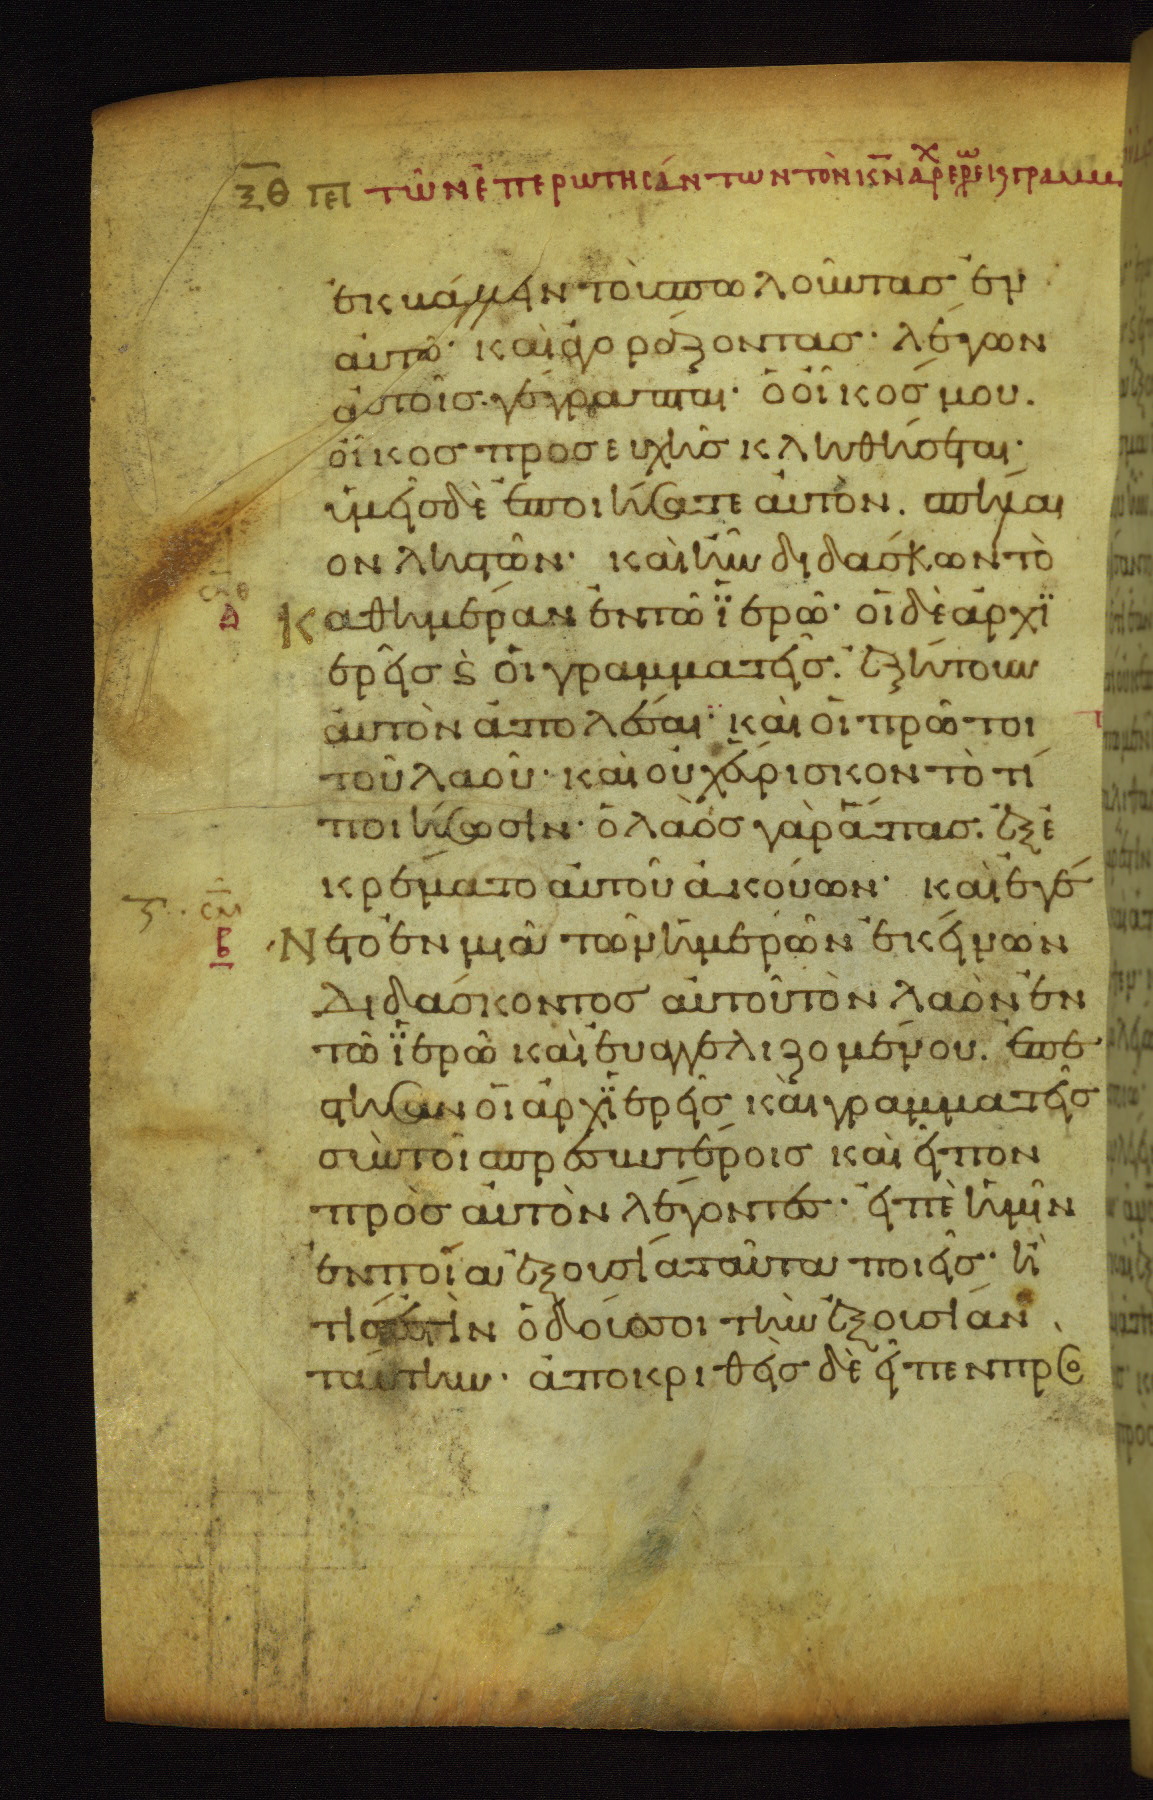 ξθ πε τῶν ἐπερωτησάντων τὸν κν ἀρχερεῖς γραμμ
ἐκβάλλειν τοὺς πωλοῦντας ἐν
αὐτῶ· καὶ ἀγοράζοντας· λέγων
αὐτοῖς. γέγραπται· ὁ οἶκός μου.
οἶκος προσευχῆς κληθήσεται·
ὑμεῖς δὲ ἐποιήσατε αὐτὸν. σπήλαι
ον ληστῶν· καὶ ἦν διδάσκων τὸ
σλθ
Δ
Καθημέραν ἐν τῶ ϊερῶ· οἱ δὲ ἀρχϊ
ερεῖς ϗ οἱ γραμματεῖς. ἐζήτουν
αὐτὸν ἀπολέσαι· καὶ οἱ πρῶτοι
τοῦ λαοῦ· καὶ οὐχ εὕρισκον τὸ τί
ποιήσωσιν· ὁ λαὸς γὰρ ἅπας. ἐξε
κρέματο αὐτοῦ ἀκούων· καὶ ἐγέ
σμ
Β
Νετο ἐν μιᾶ τῶν ἡμερῶν ἐκείνων
Διδάσκοντος αὐτοῦ τὸν λαὸν ἐν
τῶ ϊερῶ καὶ εὐαγγελιζομένου. ἐπέ
στησαν οἱ ἀρχϊερεῖς καὶ γραμματεῖς
σὺν τοῖ πρεσβυτέροις καὶ εἶπον
πρὸς αὐτὸν λέγοντες· εἰπὲ ἡμῖν
ἐν ποία ἐξουσία ταῦτα ποιεῖς· ἢ
τίς ἐστὶν ὁ δούς σοι τὴν ἐξουσίαν
ταύτην· ἀποκριθεὶς δὲ εἶπεν πρὸς